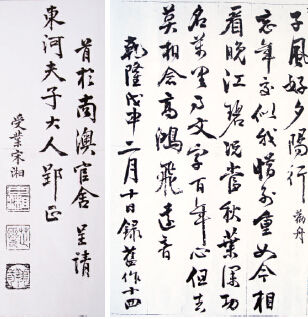 子風好夕陽行舟
忘年交似我惜別重如今相
看晚江碧況當秋葉深功
名萬里事文字百年心但去
莫相念高鴻飛遠音
乾隆戊申二月十日錄舊作十四
首於南澳官舍呈請
東河夫子大人郢正
受業宋湘